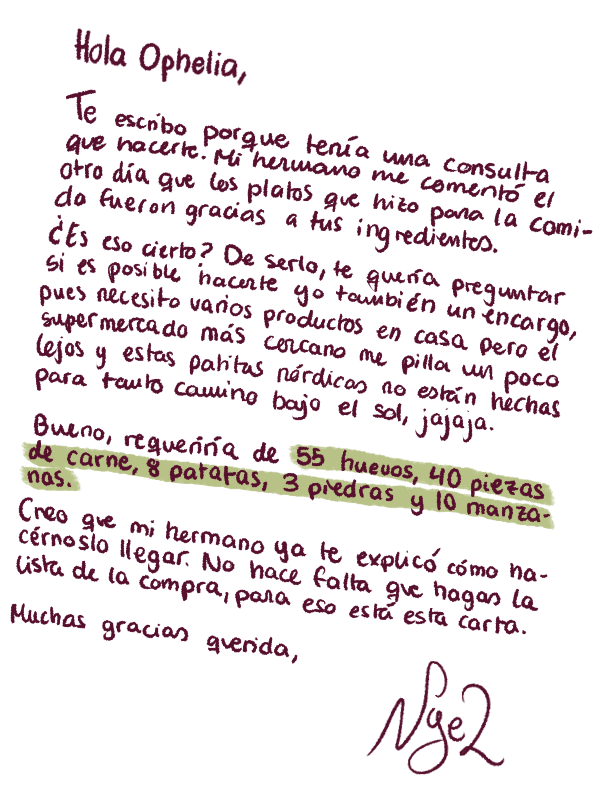 Hola Ophelia,
Te escribo porque tenía una consulta
que hacerte. Mi hermano me comentó el
otro día que los platos que hizo para la comi-
da fueron gracias a tus ingredientes.
¿Es eso cierto? De serlo, te quería preguntar
si es posible hacerte yo también un encargo,
pues necesito varios productos en casa pero el
supermercado más cercano me pilla un poco
lejos y estas patitas nórdicas no están hechas
para tanto camino bajo el sol, jajaja.
Bueno, requeriría de 55 huevos, 40 piezas
de carne, 8 patatas, 3 piedras y 10 manza-
nas.
Creo que mi hermano ya te explicó cómo ha-
cérnoslo llegar. No hace falta que hagas la
lista de la compra, para eso está esta carta.
Muchas gracias querida,